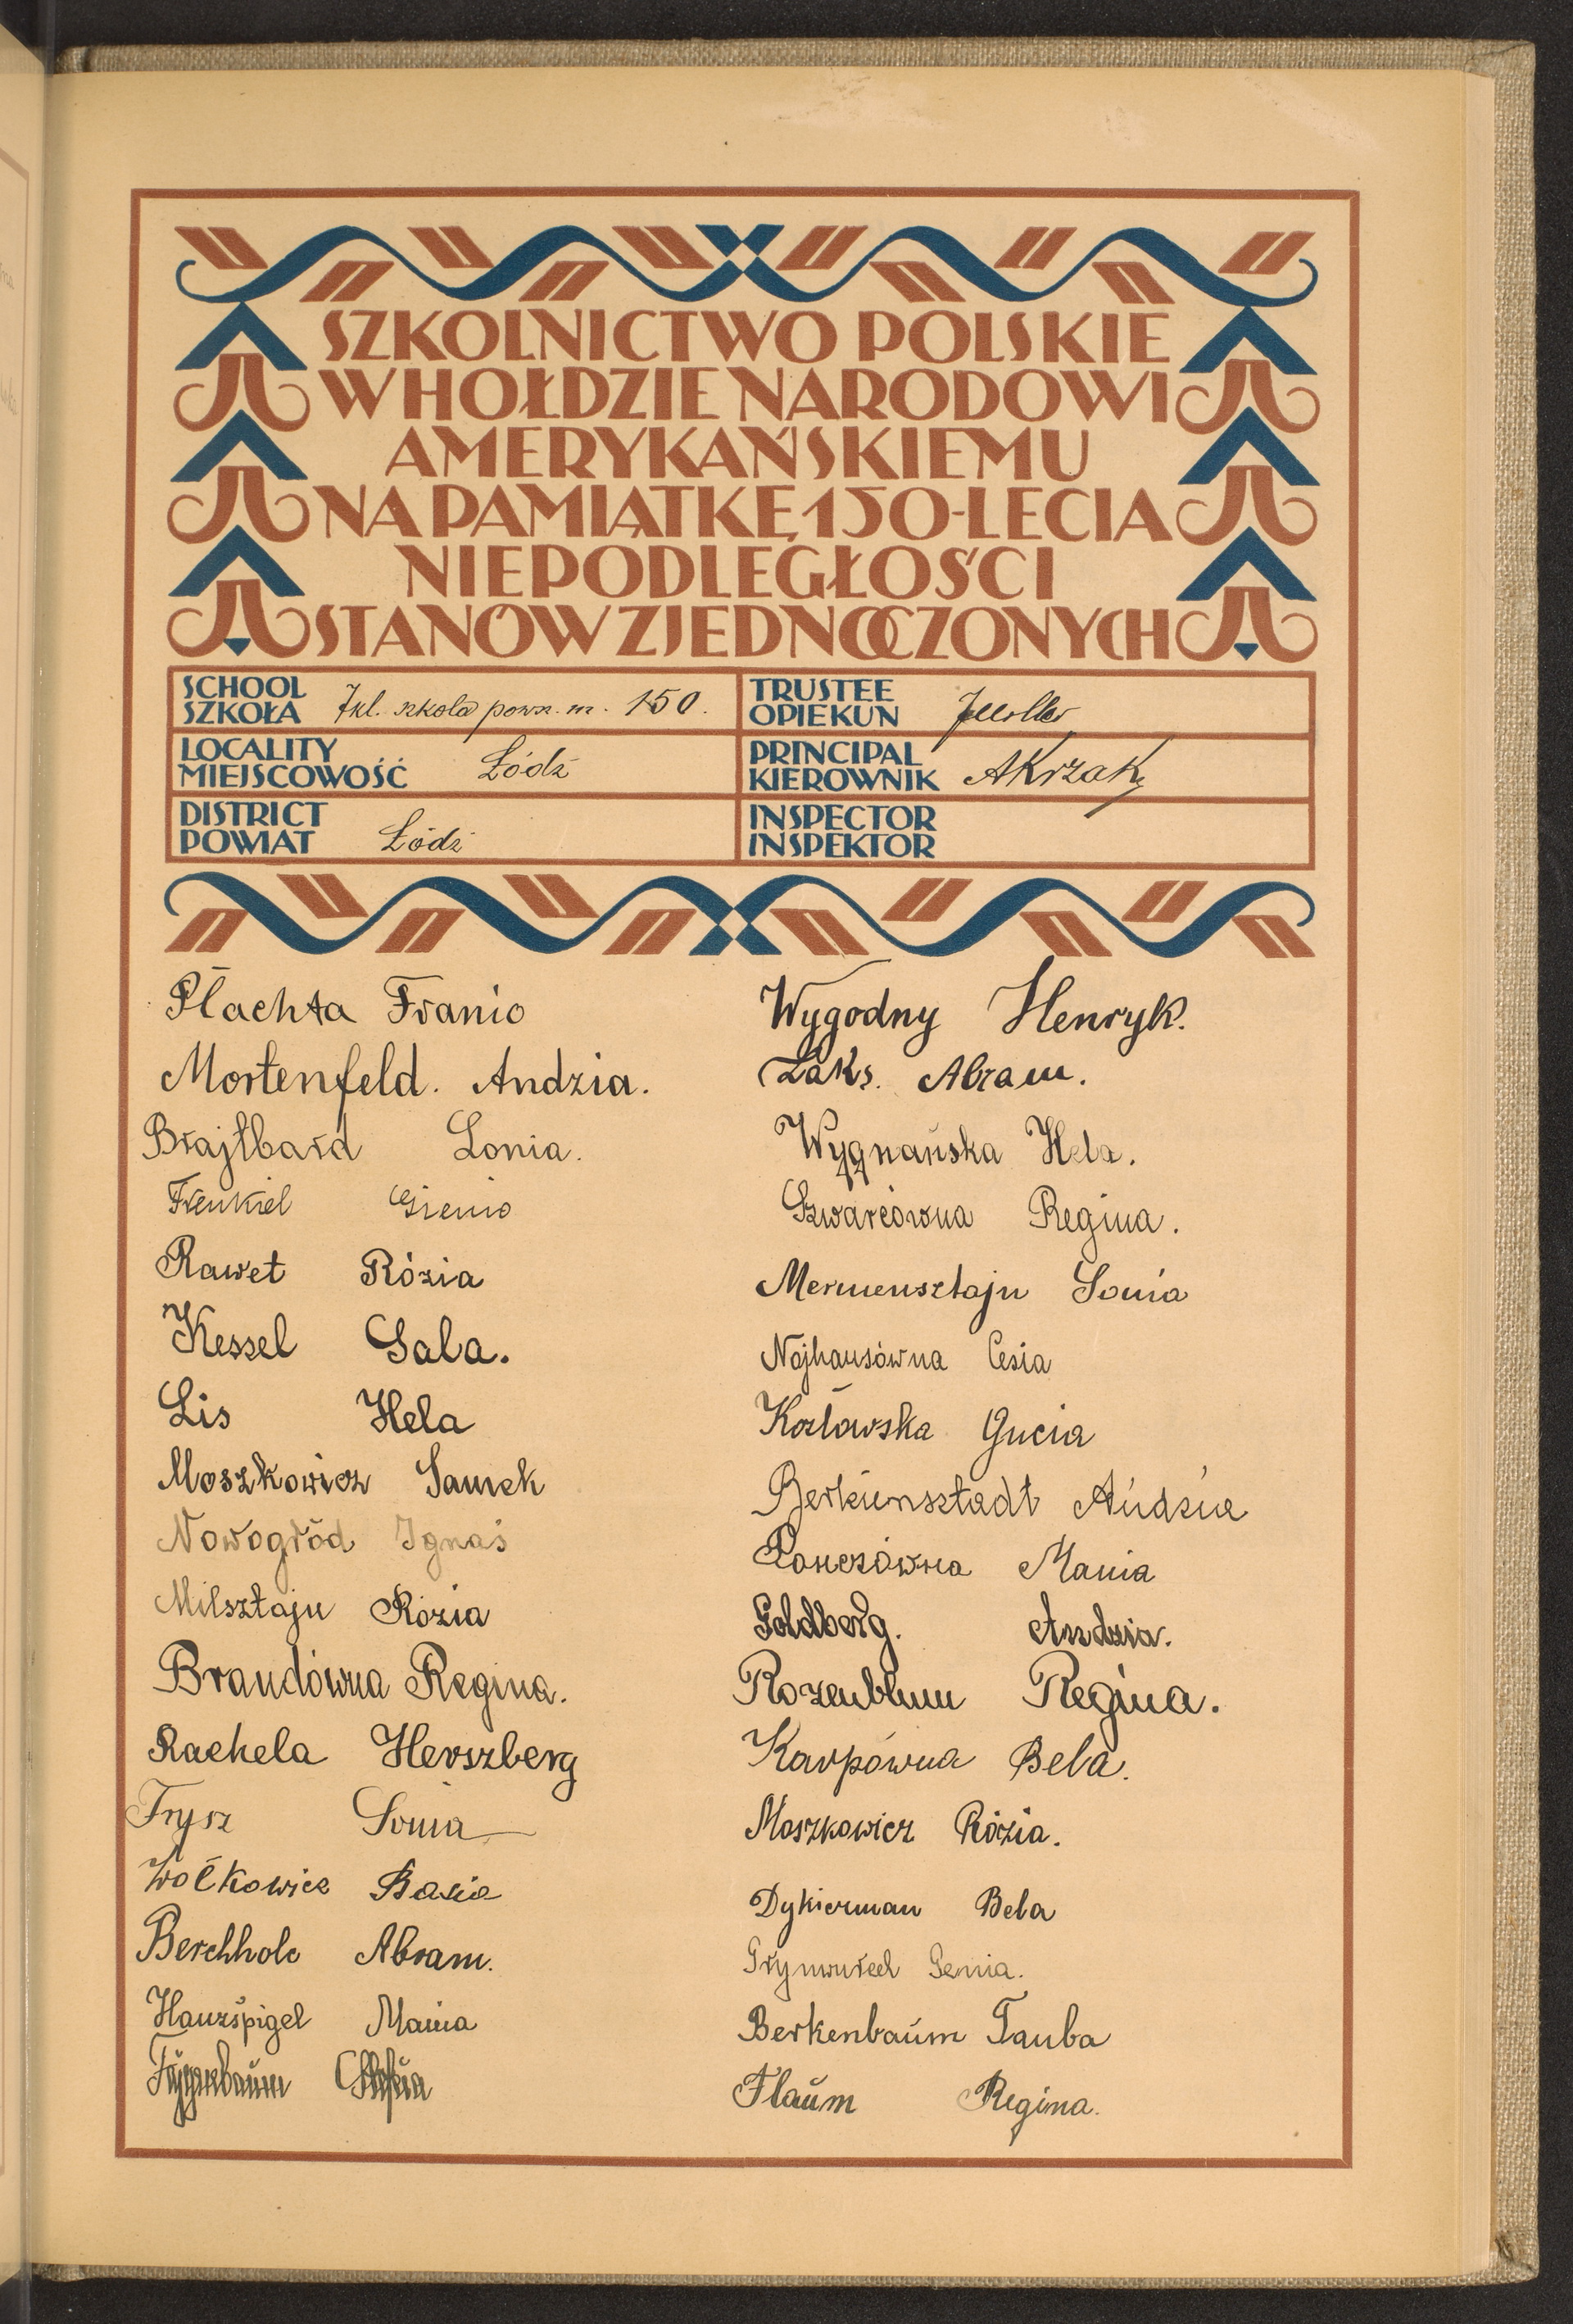 SZKOLNICTWO POLSKIE
W HOŁDZIE NARODOWI
AMERYKAŃSKIEMU
NA PAMIĄTKĘ 150-LECIA
NIEPODLEGŁOŚCI
STANÓW ZJEDNOCZONYCH
SCHOOL
SZKOŁA
7kl. szkoła powsz. nr. 150.
TRUSTEE
OPIEKUN
LOCALITY
MIEJSCOWOŚĆ
Łódź
PRINCIPAL
KIEROWNIK
AKrzak
DISTRICT
POWIAT
Łódź
INSPECTOR
INSPEKTOR
Płachta Franio
Mortenfeld. Andzia.
Brajtbard Lonia.
Frenkiel Gienio
Rawet Rózia
Kessel Sala.
Lis Hela
Moszkowicz Samek
Nowogród Ignaś
Milsztajn Rózia
Brandówna Regina.
Rachela Herszberg
Frysz Sonia
Wołkowicz Basia
Berchholc Abram.
Hauzśpigel Mania
Wygodny Henryk.
Laks. Abram.
Wygnańska Hela.
Szwarcówna Regina.
Mermensztajn Sonia
Najhausówna Cesia
Kozłowska Gucia
Berkensztadt Andzia
Panczówna Mania
Goldberg. Andzia.
Rozenblum Regina.
Karpówna Bela.
Moszkowicz Rózia.
Dykierman Bela
Genia.
Berkenbaum Tauba
Flaum Regina.